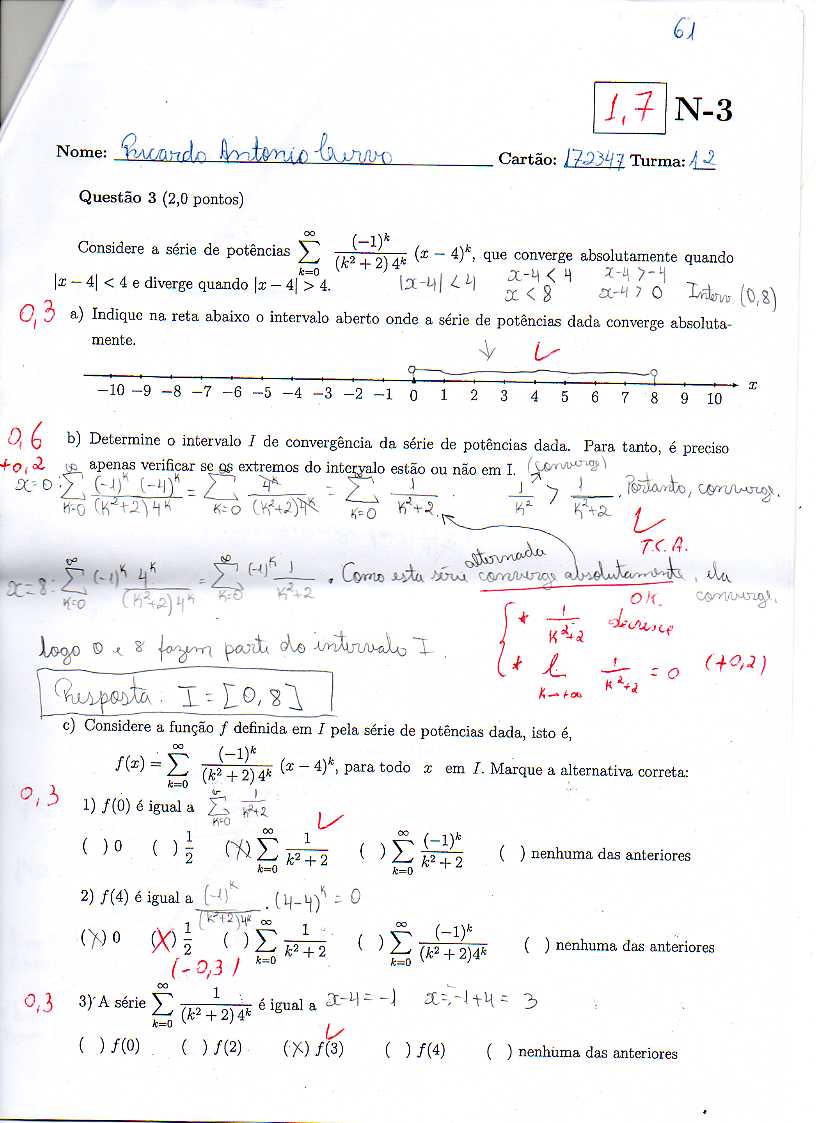 61
1,7 N-3
Nome: Ricardo Antonio Curvo Cartão: 172347 Turma: 12
Questão 3 (2,0 pontos)
Considere a série de potências ∑_{k=0}^{∞} (-1)^k / ((k² + 2) 4^k) (x − 4)^k, que converge absolutamente quando
|x − 4| < 4 e diverge quando |x − 4| > 4. |x-4| < 4 x-4 < 4 x-4 > -4
x < 8 x-4 > 0 Interv (0,8)
0,3 a) Indique na reta abaixo o intervalo aberto onde a série de potências dada converge absoluta-
mente.
−10 −9 −8 −7 −6 −5 −4 −3 −2 −1 0 1 2 3 4 5 6 7 8 9 10 x
0,6 b) Determine o intervalo I de convergência da série de potências dada. Para tanto, é preciso
+0,2 apenas verificar se os extremos do intervalo estão ou não em I. (converge)
x=0: ∑_{k=0}^{∞} (-1)^k (-4)^k / ((k²+2) 4^k) = ∑_{k=0} 4^k / ((k²+2) 4^k) = ∑_{k=0}^{∞} 1 / (k²+2). 1/k² > 1/(k²+2). Portanto, converge.
T.C.A.
alternada
x=8: ∑_{k=0}^{∞} (-1)^k 4^k / ((k²+2) 4^k) = ∑_{k=0}^{∞} (-1)^k 1 / (k²+2). Como esta série converge absolutamente, ela
converge.
OK.
* 1/(k²+2) decresce
logo 0 e 8 fazem parte do intervalo I.
* l. _{k→+∞} 1/(k²+2) = 0 (+0,2)
Resposta: I = [0,8]
c) Considere a função f definida em I pela série de potências dada, isto é,
f(x) = ∑_{k=0}^{∞} (-1)^k / ((k² + 2) 4^k) (x − 4)^k, para todo x em I. Marque a alternativa correta:
0,3
1) f(0) é igual a ∑_{k=0}^{∞} 1/(k²+2)
( ) 0 ( ) 1/2 (X) ∑_{k=0}^{∞} 1/(k² + 2) ( ) ∑_{k=0}^{∞} (-1)^k/(k² + 2) ( ) nenhuma das anteriores
2) f(4) é igual a (-1)^k / ((k²+2) 4^k) . (4-4)^k = 0
(X) 0 (X) 1/2 ( ) ∑_{k=0}^{∞} 1/(k² + 2) ( ) ∑_{k=0}^{∞} (-1)^k/((k² + 2)4^k) ( ) nenhuma das anteriores
(-0,3)
0,3 3) A série ∑_{k=0}^{∞} 1/((k² + 2) 4^k) é igual a x-4 = -1 x = -1+4 = 3
( ) f(0) ( ) f(2) (X) f(3) ( ) f(4) ( ) nenhuma das anteriores